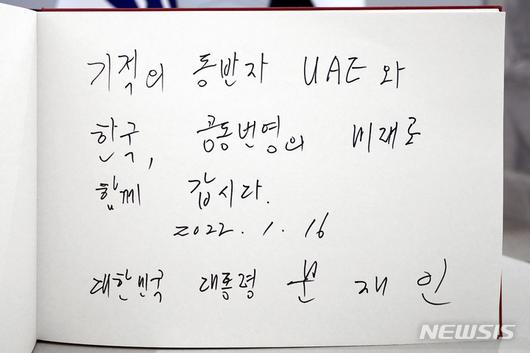 기적의 동반자 UAE와
한국, 공동번영의 미래로
함께 갑시다.
2022. 1. 16
대한민국 대통령 문재인
NEWSIS